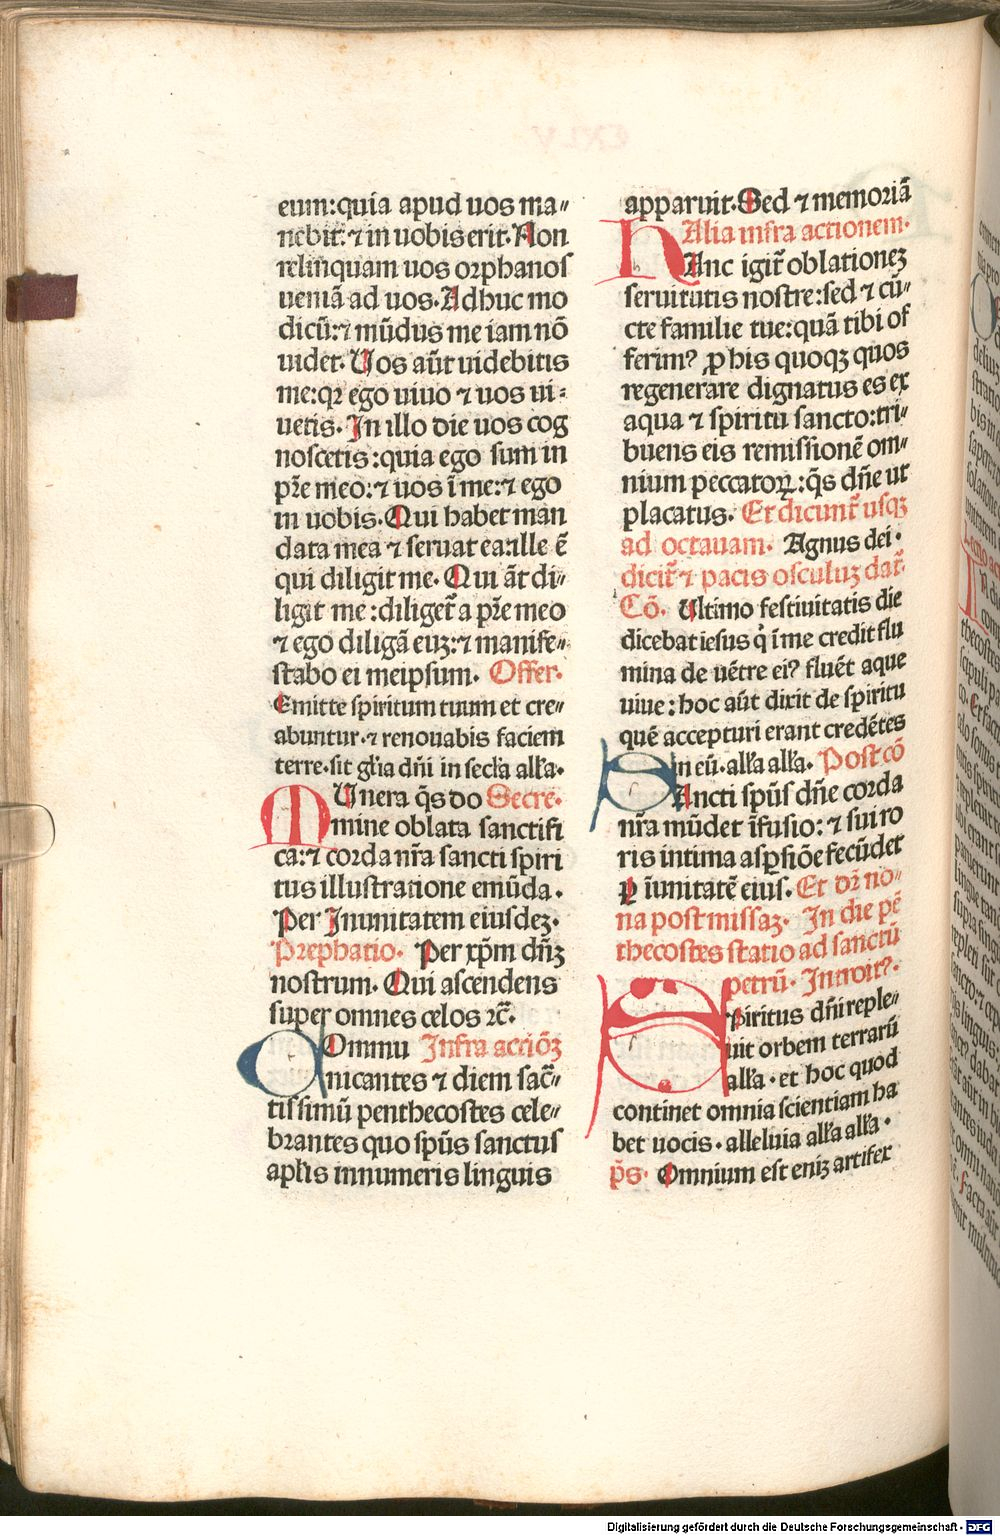 eum:quia apud uos ma„
nebit̃:⁊ in uobis erit. Non
relinquam uos orphanos
ueniã ad uos. Adhuc mo
dicũ:⁊ mũdus me iam nõ
uidet. Uos aũt uidebitis
me:qꝛ ego uiuo ⁊ uos ui„
uetis. In illo die uos cog
noscetis:quia ego sum in
pr̃e meo:⁊ uos ĩ me:⁊ ego
in uobis. Qui habet man
data mea ⁊ seruat ea:ille ẽ
qui diligit me. Qui ãt di„
ligit me:diliget̃ a pr̃e meo
⁊ ego diligã euꝫ:⁊ manife„
stabo ei meipsum. Offer.
Emitte spiritum tuum et cre„
abuntur.⁊ renouabis faciem
terre.sit gl̃ia dñi in secl̃a all̃a.
MUnera q̃s do Secre.
mine oblata sanctifi
ca:⁊ corda nr̃a sancti spiri
tus illustratione emũda.
Per Inunitatem eiusdeꝫ.
Prephatio. Per xp̃m dñꝫ
nostrum. Qui ascendens
super omnes celos ⁊c̃.
COmmu Infra actiõꝫ
nicantes ⁊ diem sac̃„
tissimũ penthecostes cele„
brantes quo sp̃us sanctus
apl̃is innumeris linguis
apparuit. Sed ⁊ memoriã
Alia infra actionem.
HAnc igit̃ oblationeꝫ
seruitutis nostre:sed ⁊ cũ„
cte familie tue:quã tibi of
ferim⁹ ꝓ his quoqꝫ quos
regenerare dignatus es ex
aqua ⁊ spiritu sancto:tri„
buens eis remissionẽ om„
nium peccatoꝝ:q̃s dñe ut
placatus. Et dicunt̃ usqꝫ
ad octauam. Agnus dei.
dicit̃ ⁊ pacis osculuꝫ dat̃.
Cõ. Ultimo festiuitatis die
dicebat iesus q̇ ĩ me credit flu
mina de uẽtre ei⁹ fluẽt aque
uiue:hoc aũt dixit de spiritu
quẽ accepturi erant credẽtes
in eũ.all̃a all̃a. Post cõ
SAncti sp̃us dñe corda
nr̃a mũdet ĩfusio:⁊ sui ro
ris intima asꝑsiõe fecũdet
P ĩunitatẽ eius. Et dr̃ no„
na post missaꝫ. In die pẽ
thecostes statio ad sanctũ
petrũ. Introit⁹.
SPiritus dñi reple„
uit orbem terrarũ
all̃a.et hoc quod
continet omnia scientiam ha
bet uocis.alleluia all̃a all̃a.
p̃s. Omnium est eniꝫ artifex
Digitalisierung gefördert durch die Deutsche Forschungsgemeinschaft - DFG